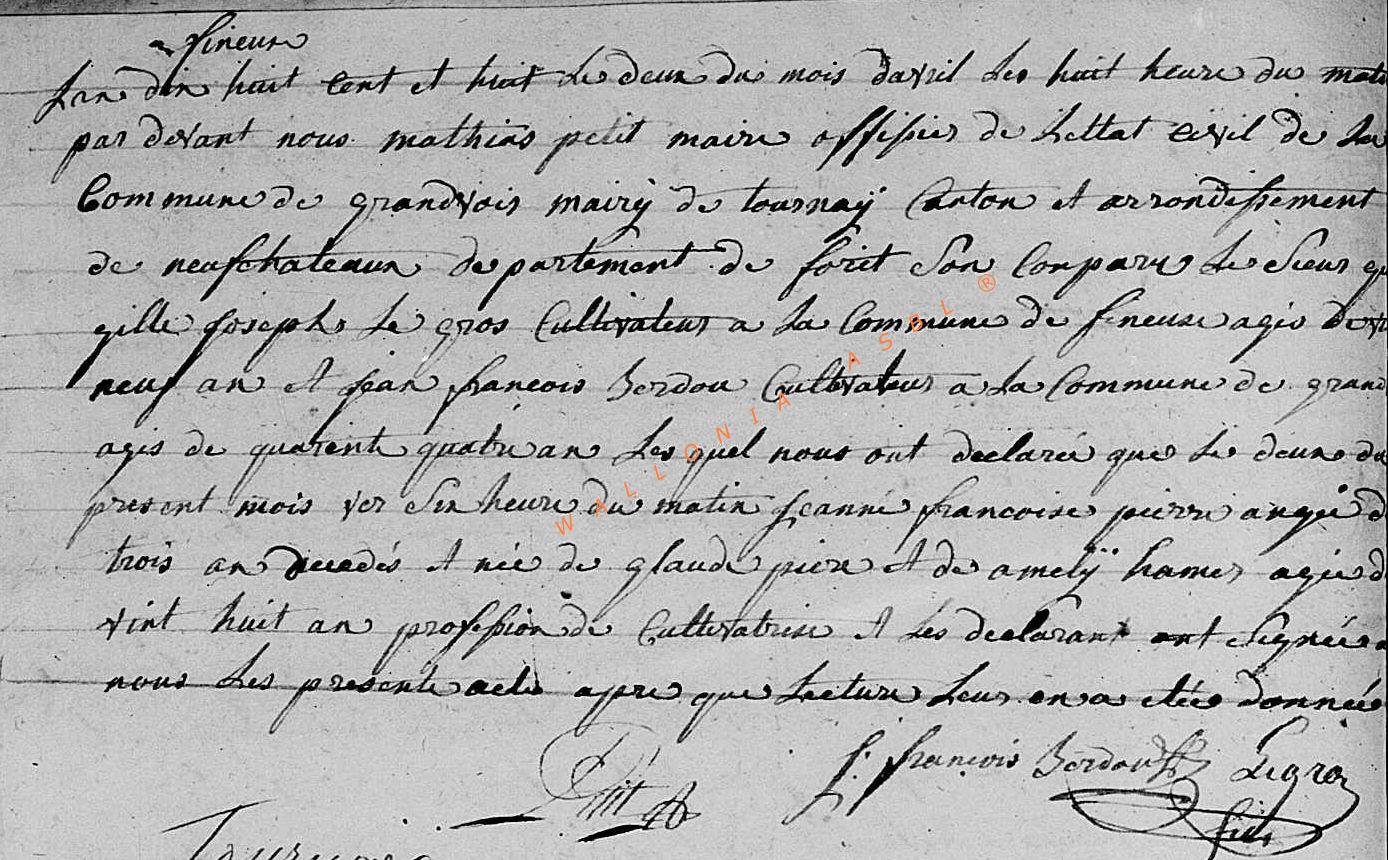 fineuse
Lan dix huit cent et huit Le deux du mois davril Les huit heure du mati
par devant nous mathias petit maire offisier de Lettat civil de La
Commune de grandvois mairÿ de tournaÿ Canton et arrondissement
de neufchateaux departement de forit Son Conparu Le Sieur
gille Joseph Le gros Cultivateur a La Commune de fineuse agis de
neuf an et jean françois Bordou Cultivateur a La Commune de grand
agis de quarent quatre an Les quel nous ont declaréé que Le deuxe du
present mois ver Six heure du matin Jeanne francoise pierre angié d
trois an decedés et née de glaude piere et de amelÿ hamer agée d
vint huit an profession de Cultivatrise et Les declarant ont Signéé
nous Les presente acte apre que Lecture Leur en a etéé donnéé
J. françois Bordou Legros
Petit
fils